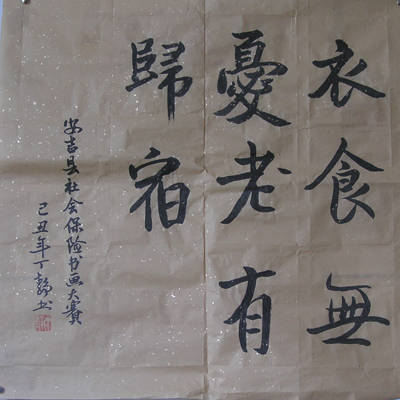 衣食無
憂老有
歸宿
安吉县社会保险书画大赛
己丑年丁静书